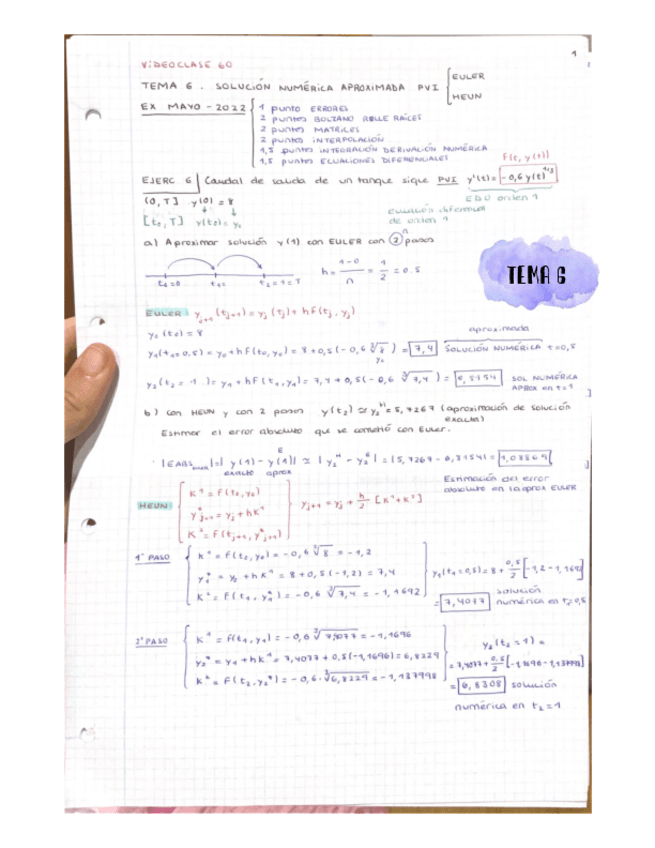 1
VIDEOCLASE 60
TEMA 6. SOLUCIÓN NUMÉRICA APROXIMADA PVI { EULER
HEUN
EX MAYO-2022 { 1 punto ERRORES
2 puntos BOLZANO ROLLE RAÍCES
2 puntos MATRICES
2 puntos INTERPOLACIÓN
1,5 puntos INTEGRACIÓN DERIVACIÓN NUMÉRICA
1,5 puntos ECUACIONES DIFERENCIALES
F(t, y(t))
EJERC 6 | Caudal de salida de un tanque sigue PVI y'(t) = -0,6 y(t)^1/3
[0, T] y(0) = 8
EDO orden 1
[t₀, T] y(t₀) = y₀
Ecuación diferencial
de orden 1
a) Aproximar solución y(1) con EULER con 2 pasos
n
t₀=0 t₁= t₂=1=T
h = 1-0 / n = 1/2 = 0.5
TEMA 6
EULER y j+1 (t j+1) = y j (t j) + h f(t j, y j)
y₀(t₀) = 8
aproximada
y₁(t₁=0.5) = y₀ + h f(t₀, y₀) = 8 + 0,5(-0,6 ∛8) = 7,4 SOLUCIÓN NUMÉRICA t=0,5
y₀
y₂(t₂=1) = y₁ + h f(t₁, y₁) = 7,4 + 0,5(-0,6 ∛7,4) = SOL NUMÉRICA
APROX en t=1
b) Con HEUN y con 2 pasos y(t₂) ≃ y₂ᴴ = 5,7267 (aproximación de solución
exacta)
Estimar el error absoluto que se cometió con Euler.
|y(1) - y(1)ᴱ| ≃ |y₂ᴴ - y₂ᴱ| =
exacta aprox
Estimación del error
absoluto en la aprox EULER
HEUN { K¹ = f(t₀, y₀)
y* j+1 = y j + h K¹
K² = f(t j+1, y* j+1) } y j+1 = y j + h/2 [K¹ + K²]
1º PASO { K¹ = f(t₀, y₀) = -0,6 ∛8 = -1,2
y₁* = y₀ + h K¹ = 8 + 0,5(-1,2) = 7,4
K² = f(t₁, y₁*) = -0,6 ∛7,4 = -1,1692
y₁(t₁=0,5) = 8 + 0,5/2 [-1,2 - 1,1692]
= 7,4077 solución
numérica en t=0,5
2º PASO { K¹ = f(t₁, y₁) = -0,6 ∛7,4077 = -1,1696
y₂* = y₁ + h K¹ = 7,4077 + 0,5(-1,1696) = 6,8229
K² = f(t₂, y₂*) = -0,6·∛6,8229 = -1,137998
y₂(t₂=1) =
= 7,4077 + 0,5/2 [-1,1696 - 1,137998]
= 6,8308 solución
numérica en t₂=1